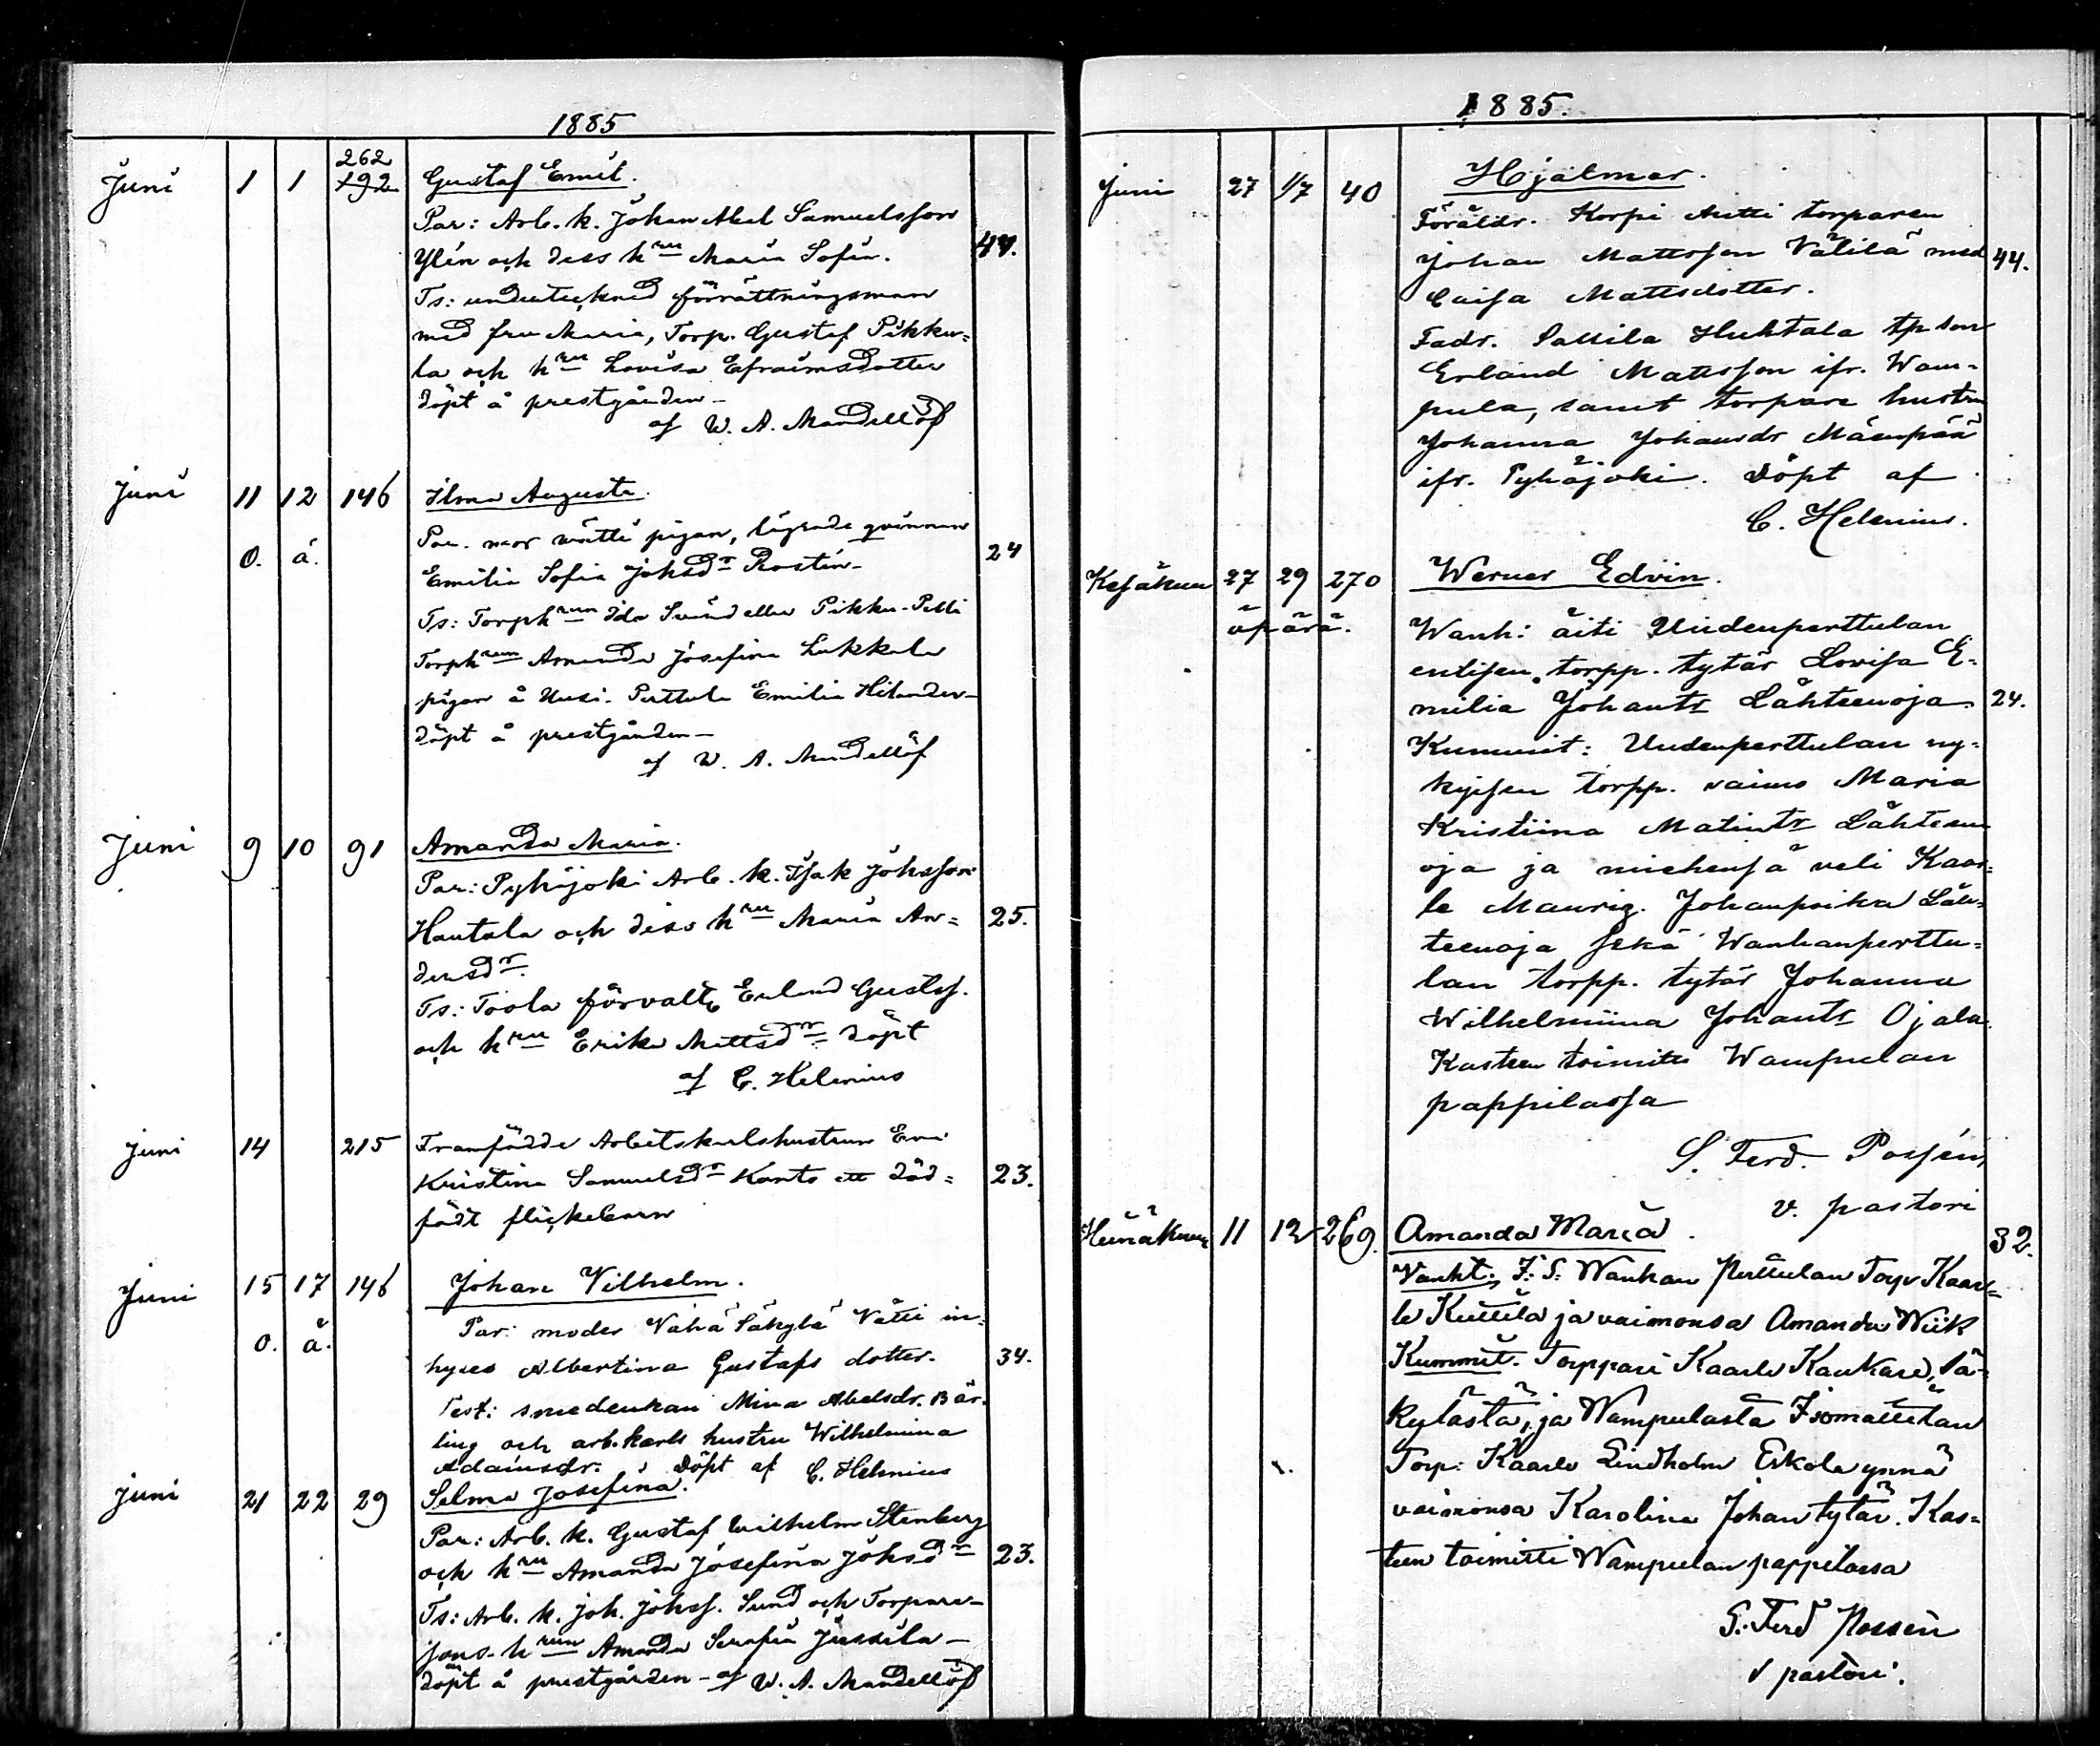 1885
262
Juni 1 1 192 Gustaf Emil.
Par: Arb. k. Johan Abel Samuelsson
Ylén och dess hru Maria Sofia. 44.
Ts: undertecknad förrättningsman
med fru Maria, Torp. Gustaf Pikku-
la och hru Lovisa Efraimsdotter
döpt å prestgården –
af W. A. Mandellöf
Juni 11 12 146 Ilma Augusta.
Par. mor Vätti pigan, lägrade qvinnan
O. ä. Emilia Sofia Johsdr Rostén – 24
Ts: Torphrun Ida Pikku-Pelli
Torphrun Amanda Josefina Lukkala
pigan å Uusi-Perttula Emilia Hilander –
döpt å prestgården –
af W. A. Mandellöf
Juni 9 10 91 Amanda Maria.
Par: Pyhäjoki Arb. k. Isak Johsson
Hautala och dess hru Maria An- 25.
dersdr.
Ts: Töola förvalt. Erland Gustfs.
och hru Erika Mattsdr döpt
af C. Helenius
Juni 14 215 Framfödde Arbetskarlshustrun Eva
Kristina Samuelsdr Kanto ett död- 23.
födt flickebarn
Juni 15 17 146 Johan Vilhelm.
Par: moder Vähä Säkylä Vätti in-
O. ä. hyses Albertina Gustafs dotter. 34.
Test: smedenkan Mina Abelsdr. Bär-
ling och arb.karls hustru Wilhelmina
Adamsdr. Döpt af C. Helenius
Juni 21 22 29 Selma Josefina.
Par: Arb. k. Gustaf Wilhelm Stenberg
och hru Amanda Josefina Johsdr 23.
Ts: Arb. k. Joh. Johsf. Sund och Torpare-
sons-hrun Amanda Serafia Jussila –
döpt å prestgården – af W. A. Mandellöf
1885.
Juni 27 1/7 40 Hjalmar.
Föräldr. Korpi Antti torparen
Johan Mattsson Välilä med 44.
Caisa Mattsdotter.
Fadr. Sallila Huhtala tp son
Erland Mattsson ifr. Wam-
pula, samt torpare hustru
Johanna Johansdr Mäenpää
ifr. Pyhäjoki. Döpt af
C. Helenius.
Kesäkuu 27 29 270 Werner Edvin.
äpärä. Wanh: äiti Uudenperttulan
entisen torpp. tytär Lovisa E-
milia Johantr Lähteenoja 24.
Kummit: Uudenperttulan ny-
kyisen torpp. vaimo Maria
Kristiina Matintr Lähteen-
oja ja miehensä veli Kaar-
le Mauriz Johanpoika Läh-
teenoja sekä Wanhanperttu-
lan torpp. tytär Johanna
Wilhelmiina Johantr Ojala.
Kasteen toimitti Wampulan
pappilassa
S. Ferd. Possén,
v. pastori
Heinäkuu 11 12 269. Amanda Maria. 32.
Vanht. I: S: Wanhan Perttulan Torp Kaar-
le Kuttila ja vaimonsa Amanda Wiik
Kummit. Torppari Kaarlo Kankare, Sä-
kylästä, ja Wampulasta Isomattilan
Torp: Kaarlo Lindholm Eskola ynnä
vaimonsa Karolina Johan tytär. Kas-
teen toimitti Wampulan pappilassa
S: Ferd Possén
v pastori.